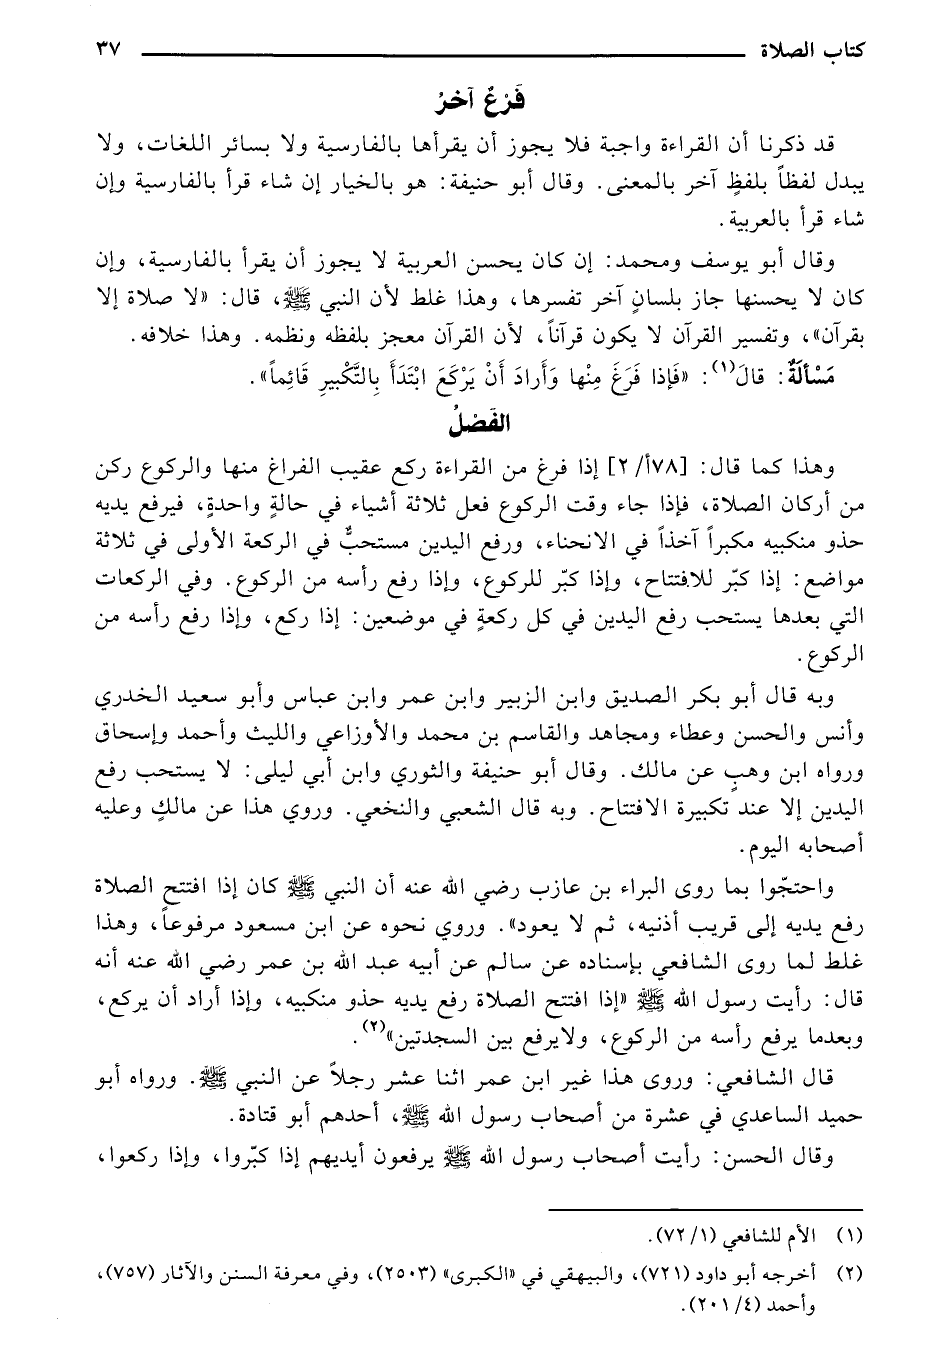 كتاب الصلاة ٣٧
فَرْعٌ آخرُ
قد ذكرنا أن القراءة واجبة فلا يجوز أن يقرأها بالفارسية ولا بسائر اللغات، ولا
يبدل لفظاً بلفظٍ آخر بالمعنى. وقال أبو حنيفة: هو بالخيار إن شاء قرأ بالفارسية وإن
شاء قرأ بالعربية.
وقال أبو يوسف ومحمد: إن كان يحسن العربية لا يجوز أن يقرأ بالفارسية، وإن
كان لا يحسنها جاز بلسانٍ آخر تفسرها، وهذا غلط لأن النبي ﷺ، قال: «لا صلاة إلا
بقرآن»، وتفسير القرآن لا يكون قرآناً، لأن القرآن معجز بلفظه ونظمه. وهذا خلافه.
مَسْألَةٌ: قالَ(١): «فَإذا فَرَغَ مِنْها وَأرادَ أنْ يَرْكَعَ ابْتَدَأَ بِالتَّكْبيرِ قَائِماً».
الفَصْلُ
وهذا كما قال: [٧٨أ/ ٢] إذا فرغ من القراءة ركع عقيب الفراغ منها والركوع ركن
من أركان الصلاة، فإذا جاء وقت الركوع فعل ثلاثة أشياء في حالةٍ واحدةٍ، فيرفع يديه
حذو منكبيه مكبراً آخذاً في الانحناء، ورفع اليدين مستحبٌّ في الركعة الأولى في ثلاثة
مواضع: إذا كبّر للافتتاح، وإذا كبّر للركوع، وإذا رفع رأسه من الركوع. وفي الركعات
التي بعدها يستحب رفع اليدين في كل ركعةٍ في موضعين: إذا ركع، وإذا رفع رأسه من
الركوع.
وبه قال أبو بكر الصديق وابن الزبير وابن عمر وابن عباس وأبو سعيد الخدري
وأنس والحسن وعطاء ومجاهد والقاسم بن محمد والأوزاعي والليث وأحمد وإسحاق
ورواه ابن وهبٍ عن مالك. وقال أبو حنيفة والثوري وابن أبي ليلى: لا يستحب رفع
اليدين إلا عند تكبيرة الافتتاح. وبه قال الشعبي والنخعي. وروي هذا عن مالكٍ وعليه
أصحابه اليوم.
واحتجّوا بما روى البراء بن عازب رضي الله عنه أن النبي ﷺ كان إذا افتتح الصلاة
رفع يديه إلى قريب أذنيه، ثم لا يعود». وروي نحوه عن ابن مسعود مرفوعاً، وهذا
غلط لما روى الشافعي بإسناده عن سالم عن أبيه عبد الله بن عمر رضي الله عنه أنه
قال: رأيت رسول الله ﷺ «إذا افتتح الصلاة رفع يديه حذو منكبيه، وإذا أراد أن يركع،
وبعدما يرفع رأسه من الركوع، ولايرفع بين السجدتين»(٢).
قال الشافعي: وروى هذا غير ابن عمر اثنا عشر رجلاً عن النبي ﷺ. ورواه أبو
حميد الساعدي في عشرة من أصحاب رسول الله ﷺ، أحدهم أبو قتادة.
وقال الحسن: رأيت أصحاب رسول الله ﷺ يرفعون أيديهم إذا كبّروا، وإذا ركعوا،
(١) الأم للشافعي (١/ ٧٢).
(٢) أخرجه أبو داود (٧٢١)، والبيهقي في «الكبرى» (٢٥٠٣)، وفي معرفة السنن والآثار (٧٥٧)،
وأحمد (٤/ ٢٠١).